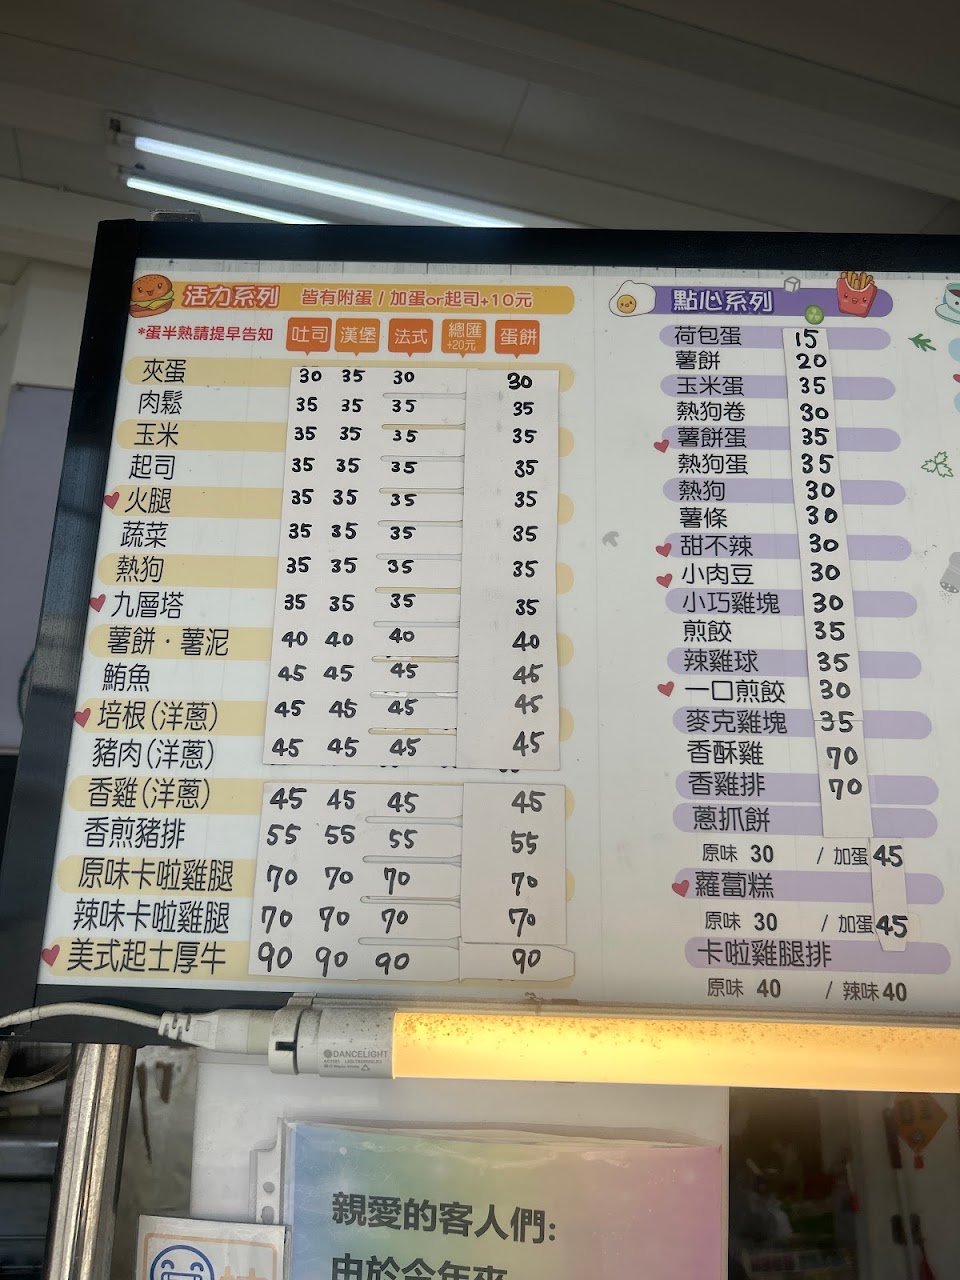 活力系列 皆有附蛋 / 加蛋or起司+10元
*蛋半熟請提早告知 吐司 漢堡 法式 總匯+20元 蛋餅
夾蛋 30 35 30 30
肉鬆 35 35 35 35
玉米 35 35 35 35
起司 35 35 35 35
火腿 35 35 35 35
蔬菜 35 35 35 35
熱狗 35 35 35 35
九層塔 35 35 35 35
薯餅·薯泥 40 40 40 40
鮪魚 45 45 45 45
培根(洋蔥) 45 45 45 45
豬肉(洋蔥) 45 45 45 45
香雞(洋蔥) 45 45 45 45
香煎豬排 55 55 55 55
原味卡啦雞腿 70 70 70 70
辣味卡啦雞腿 70 70 70 70
美式起士厚牛 90 90 90 90
點心系列
荷包蛋 15
薯餅 20
玉米蛋 35
熱狗卷 30
薯餅蛋 35
熱狗蛋 35
熱狗 30
薯條 30
甜不辣 30
小肉豆 30
小巧雞塊 30
煎餃 35
辣雞球 35
一口煎餃 30
麥克雞塊 35
香酥雞 70
香雞排 70
蔥抓餅
原味 30 / 加蛋 45
蘿蔔糕
原味 30 / 加蛋 45
卡啦雞腿排
原味 40 / 辣味 40
DANCELIGHT
親愛的客人們:
由於今年來